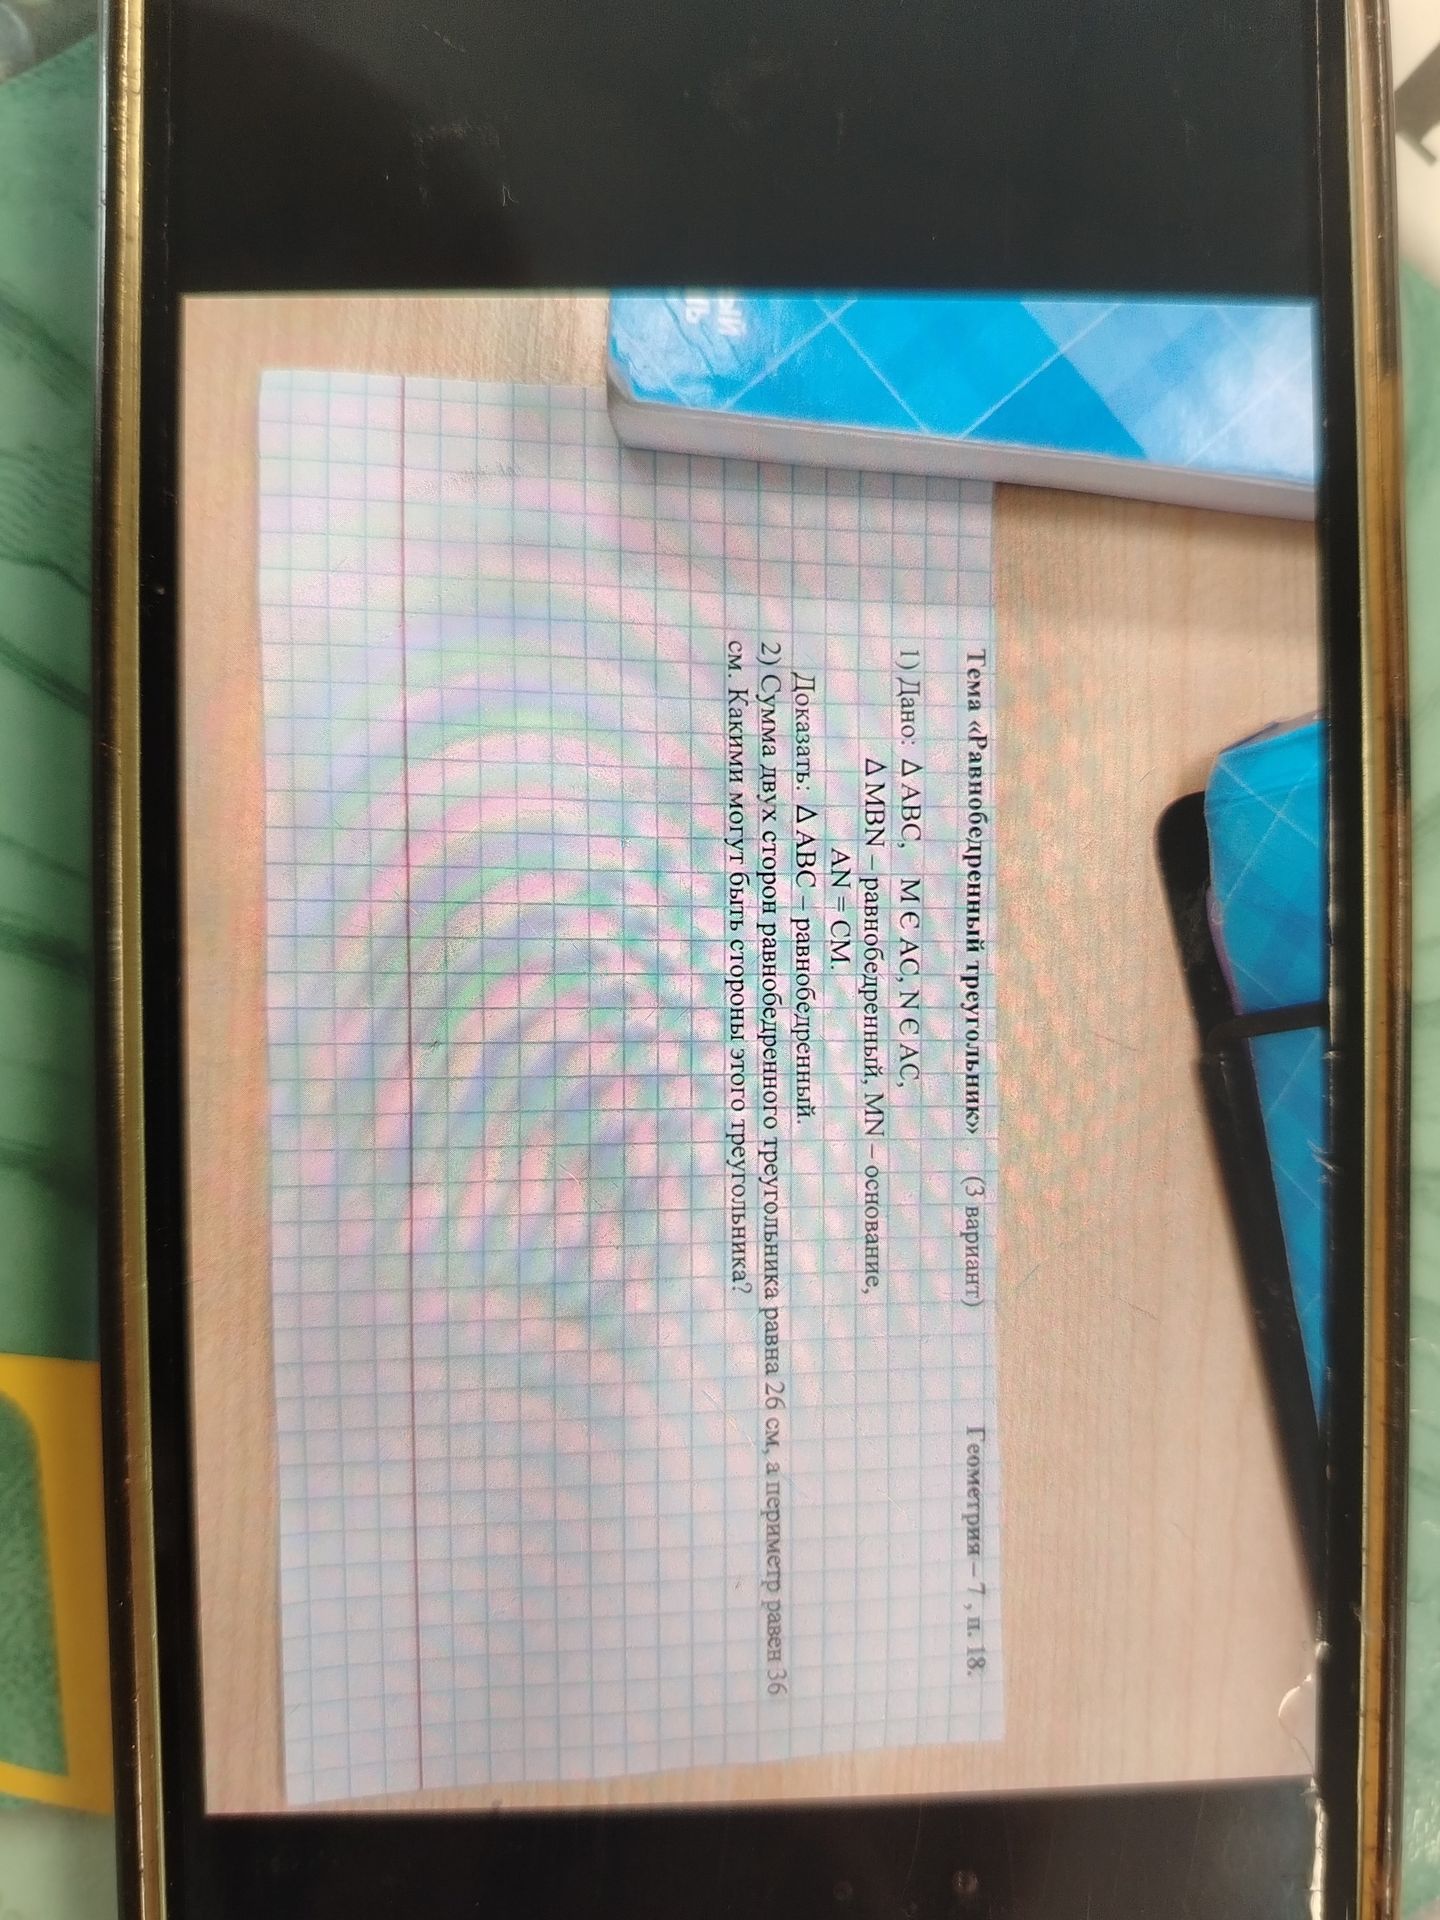 ый
ль
Тема «Равнобедренный треугольник» (3 вариант) Геометрия – 7 , п. 18.
1) Дано: Δ ABC, M Є AC, N Є AC,
Δ MBN – равнобедренный, MN – основание,
AN = CM.
Доказать: Δ ABC – равнобедренный.
2) Сумма двух сторон равнобедренного треугольника равна 26 см, а периметр равен 36
см. Какими могут быть стороны этого треугольника?